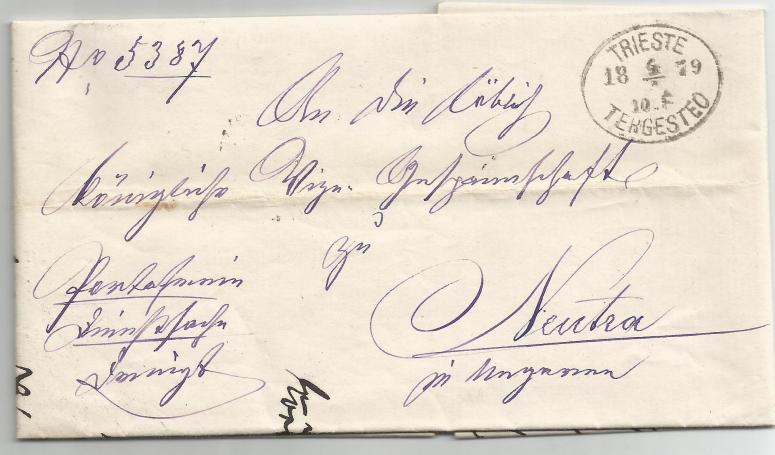 No 5387
TRIESTE
18 79
TERGESTEO
An die Löblich
Königliche Vize-Gespannschaft
zu
Neutra
in Ungarn
Portofreie
Dienstsache